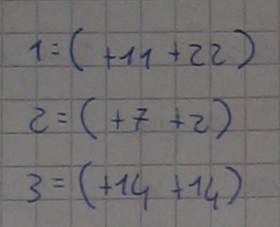 1=( +11 +22 )
2=( +7 +2 )
3=( +14 +14 )